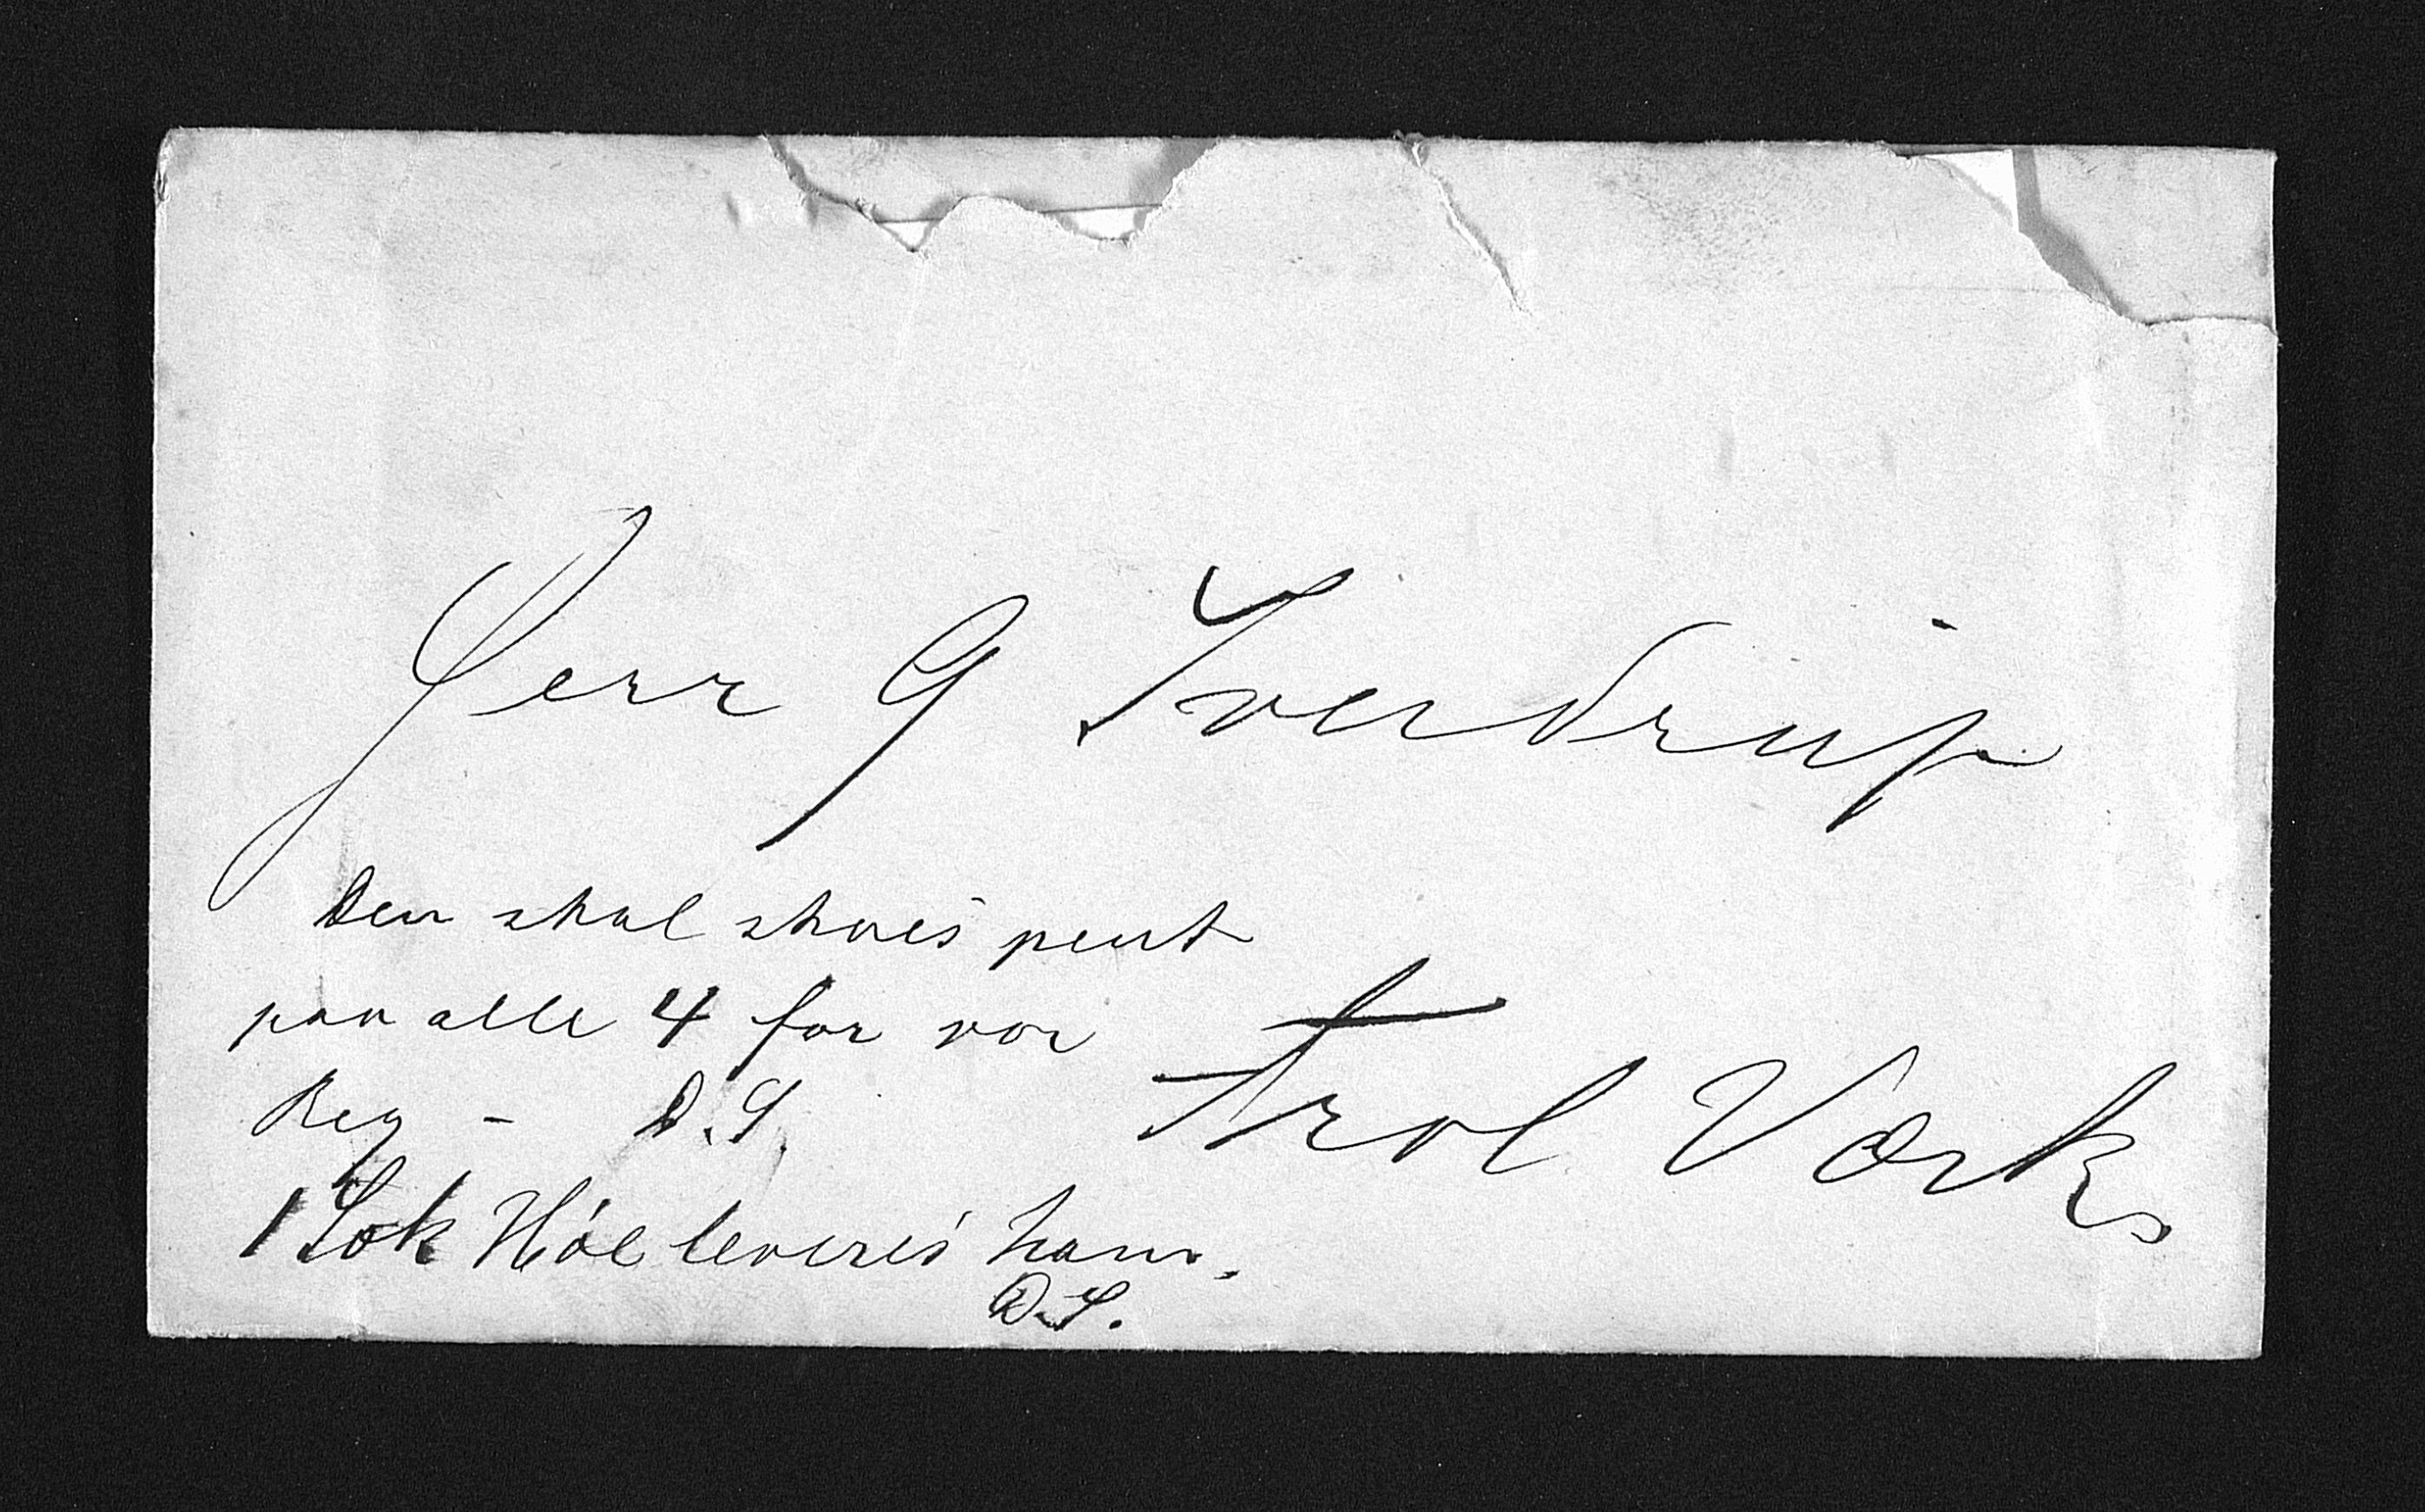 Herr G Sverdrup
Den skal skoes pent
paa alle 4 for vor
Reg - D.S.
Frol Værk
1 Sæk Høe leveres ham.
D.S.